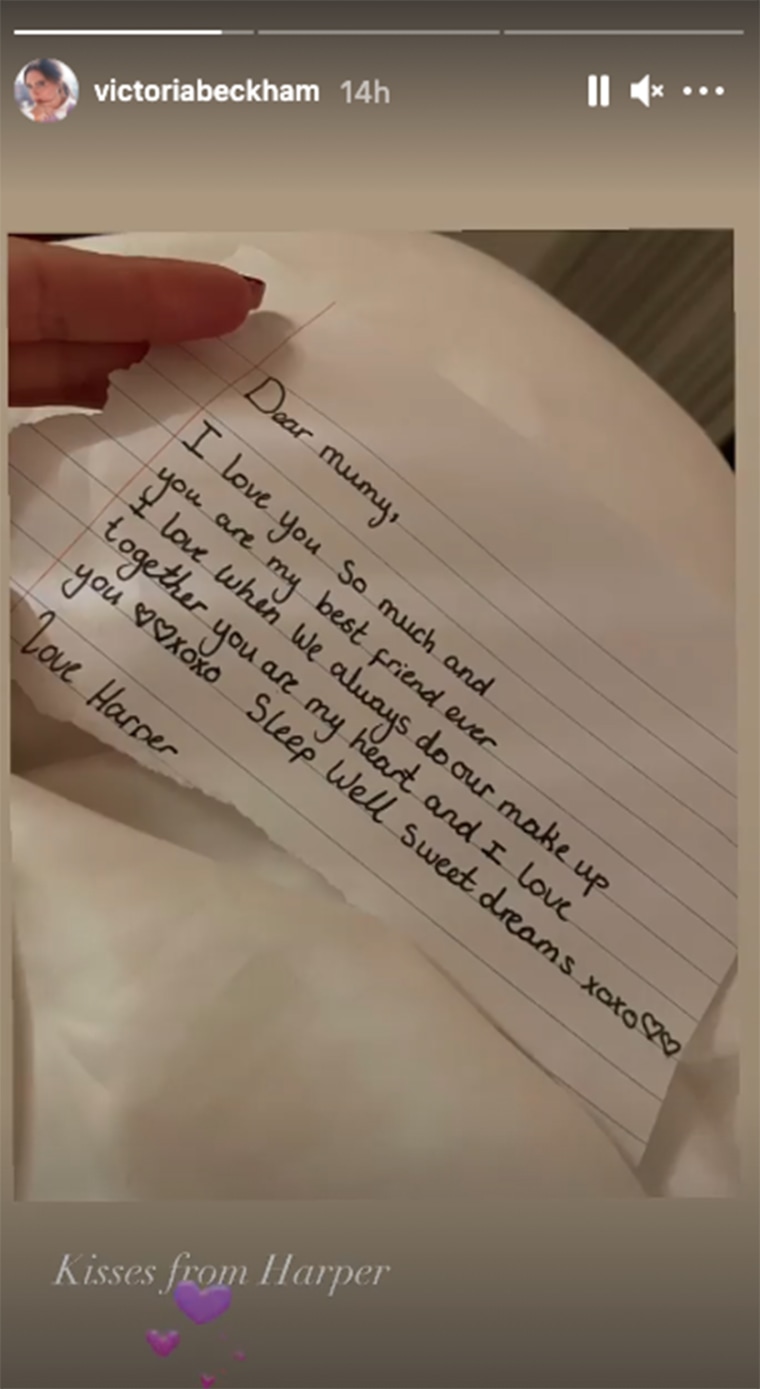 victoriabeckham 14h
Dear mumy,
I love you so much and
you are my best friend ever
I love when we always do our make up
together you are my heart and I love
you ♡♡xoxo Sleep Well sweet dreams xoxo♡♡
Love Harper
Kisses from Harper